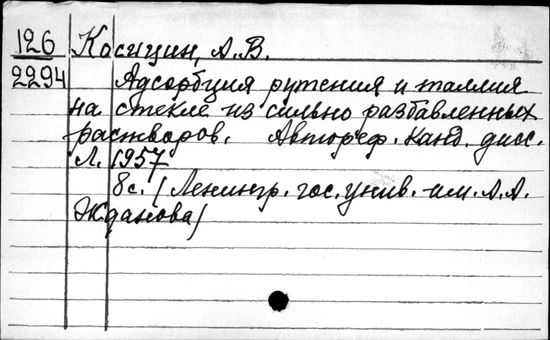 126 Косицин, А.В.
2294 Адсорбция рутения и таллия
на стекле из сильно разбавленных
растворов. Автореф. канд. дисс.
Л. 1957
8с. (Ленингр. гос. унив. им. А.А.
Жданова)